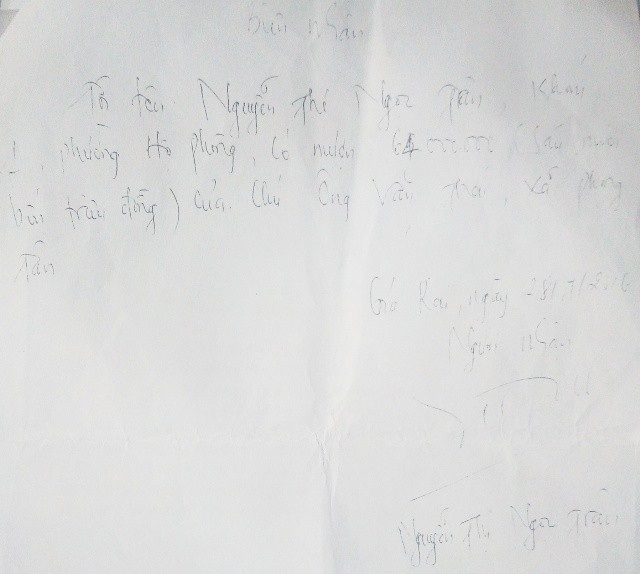 Biên nhận
Tôi tên Nguyễn Thị Ngọc Trân, Khóm
1, phường Hộ Phòng, có mượn 64 000 000 (Sáu mươi
bốn triệu đồng) của Chú Ông Văn Thái, xã Phong
Tân
Giá Rai, ngày
Người nhận
Nguyễn Thị Ngọc Trân